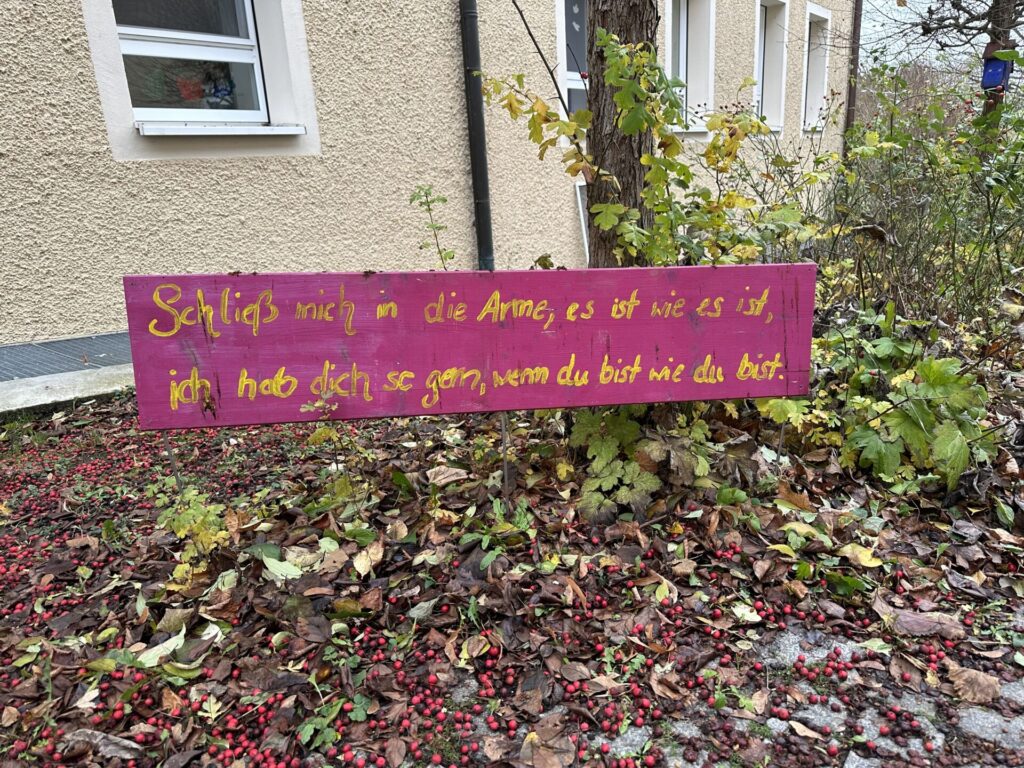 Schließ mich in die Arme, es ist wie es ist,
ich hab dich so gern, wenn du bist wie du bist.